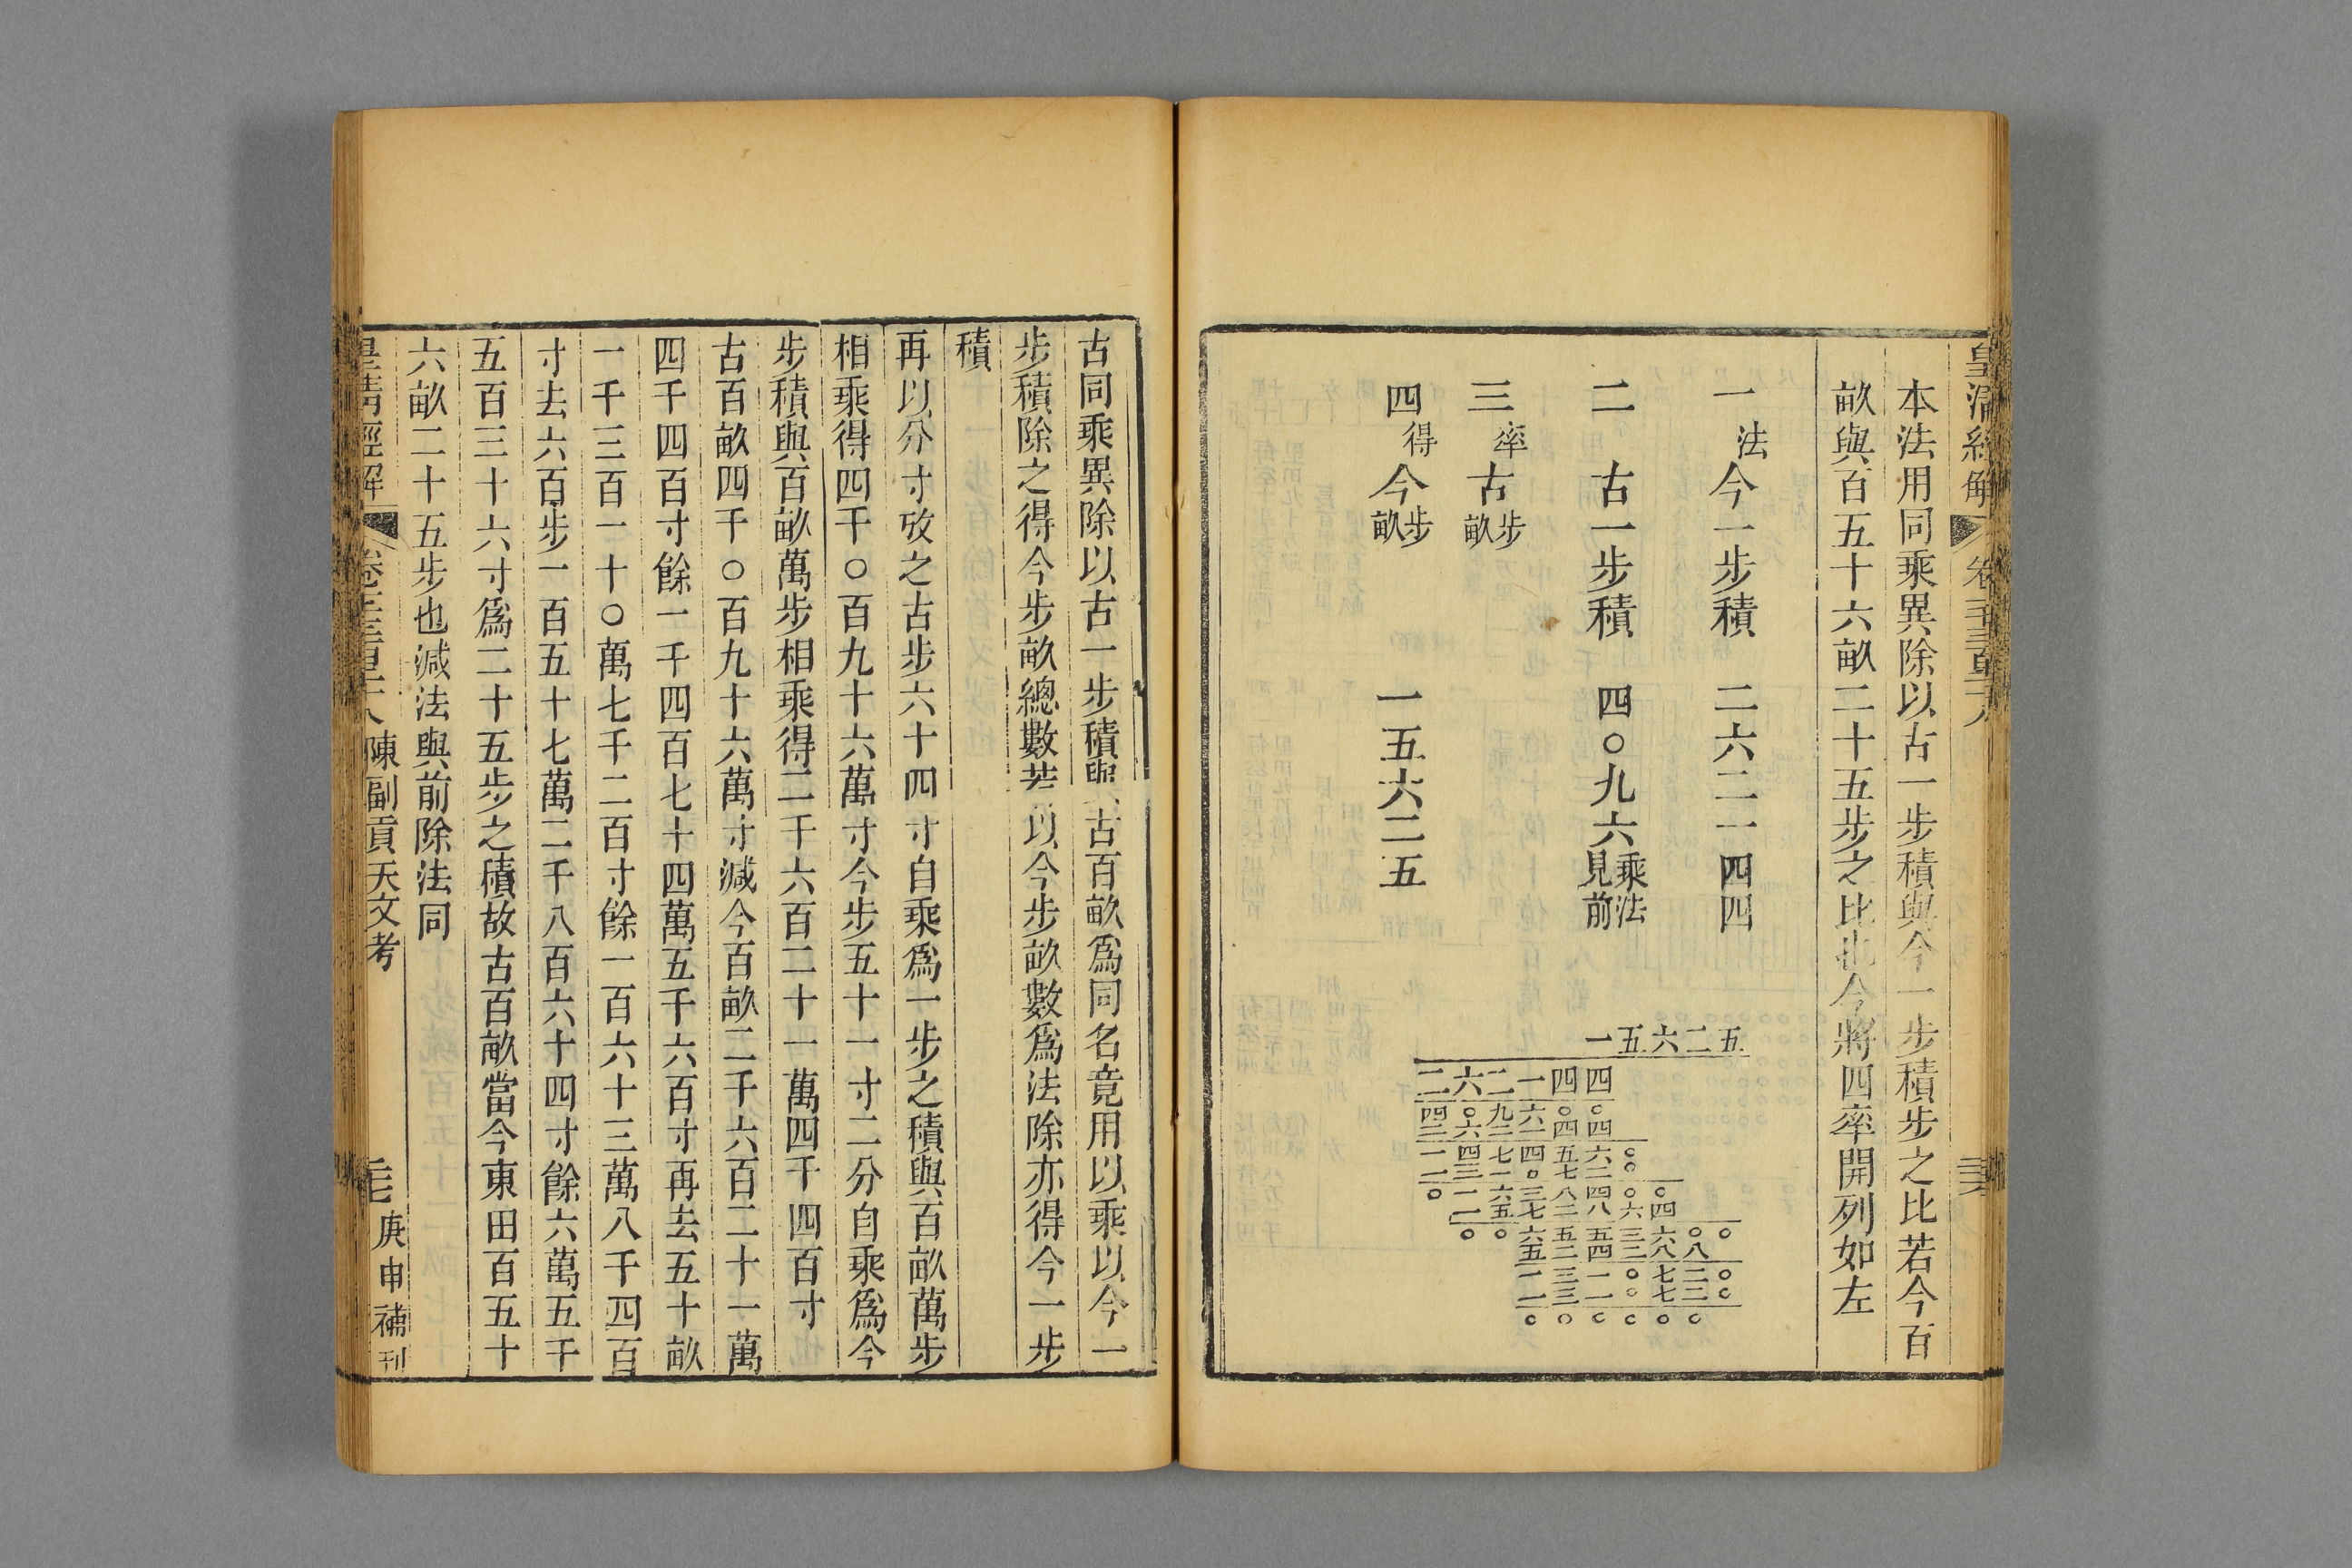 皇清經解
卷一千三百三十八
本法用同乘異除以古一步積與今一步積步之比若今百
畝與百五十六畝二十五步之比也今將四率開列如左
一法今一步積 二六二一四四
二 古一步積 四〇九六乘法見前
三率古步畝
四得今步畝 一五六二五
一五六二五
二六二一四四
古同乘異除以古一步積與古百畝爲同名竟用以乘以今一
步積除之得今步畝總數若以今步畝數爲法除亦得今一步
積
再以分寸攷之古步六十四寸自乘爲一步之積與百畝萬步
相乘得四千〇百九十六萬寸今步五十一寸二分自乘爲今
步積與百畝萬步相乘得二千六百二十一萬四千四百寸
古百畝四千〇百九十六萬寸減今百畝二千六百二十一萬
四千四百寸餘一千四百七十四萬五千六百寸再去五十畝
一千三百一十〇萬七千二百寸餘一百六十三萬八千四百
寸去六百步一百五十七萬二千八百六十四寸餘六萬五千
五百三十六寸爲二十五步之積故古百畝當今東田百五十
六畝二十五步也減法與前除法同
皇清經解
陳副貢天文考
庚申補刊